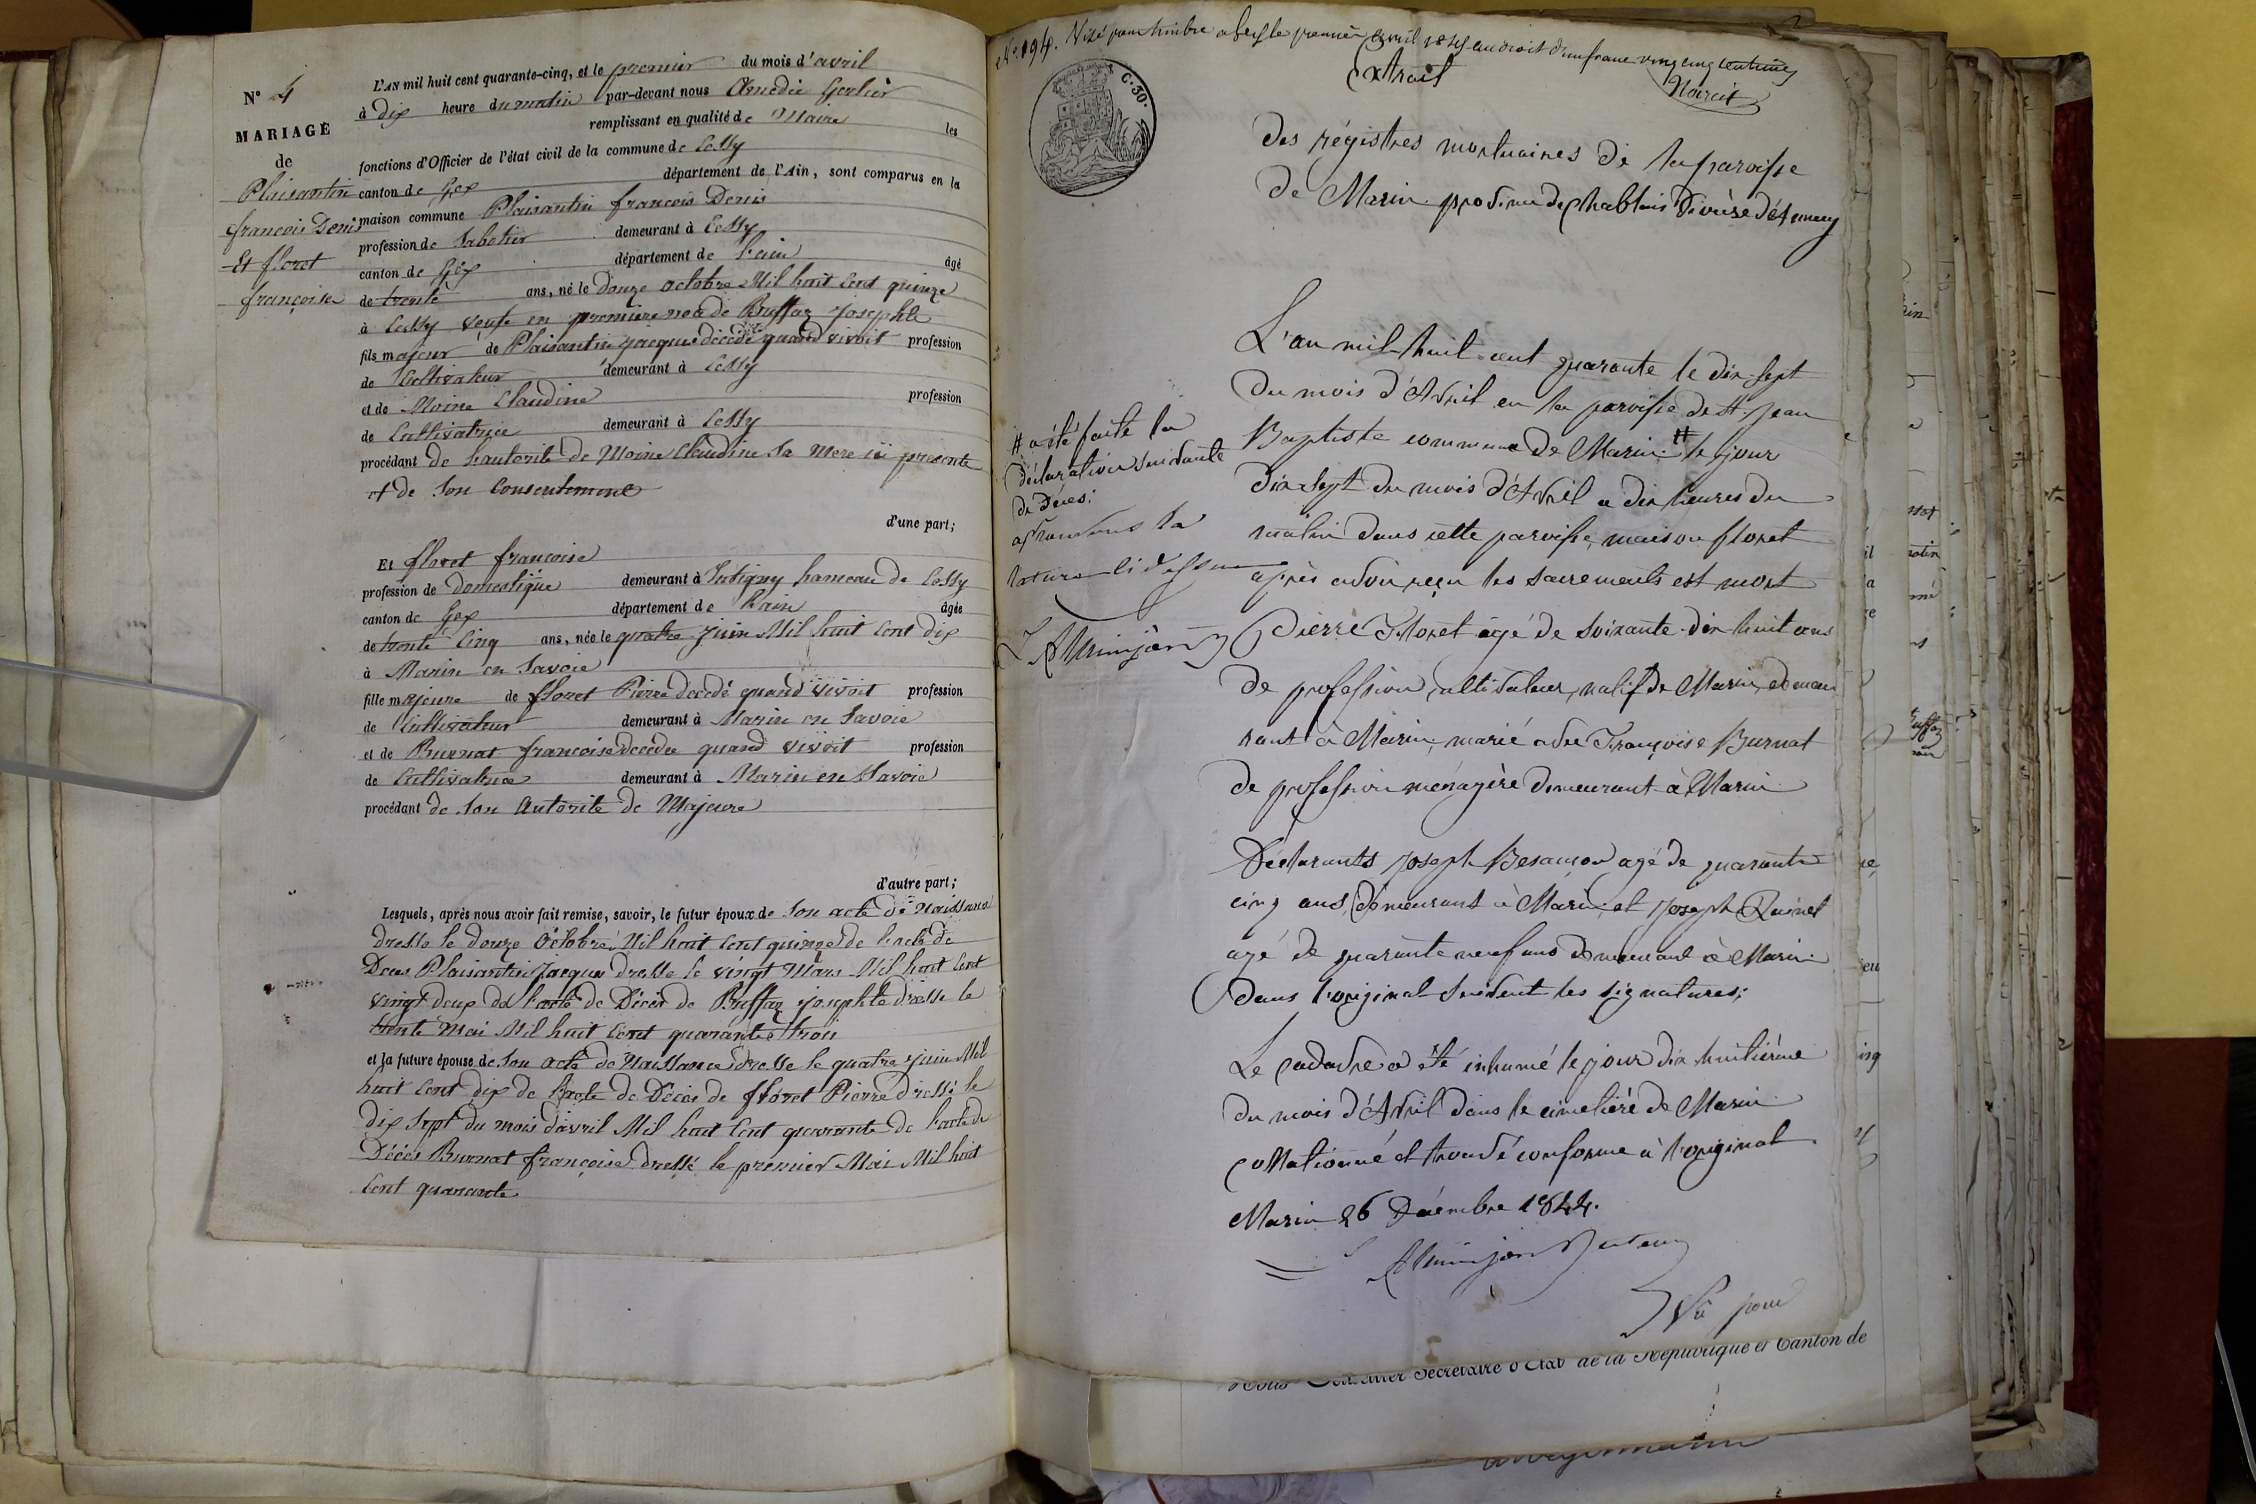 N° 4
MARIAGE
de
Plaisantin
françois Denis
Et floret
françoise
L'AN mil huit cent quarante-cinq, et le premier du mois d'avril
à dix heure du matin par-devant nous Amédée
remplissant en qualité de Maire les
fonctions d'Officier de l'état civil de la commune de Cessy
canton de Gex département de l'Ain, sont comparus en la
maison commune Plaisantin françois Denis
profession de Sabotier demeurant à Cessy
canton de Gex département de l'ain âgé
de trente ans, né le douze octobre Mil huit Cent quinze
à Cessy veuf en premiere noce de Buffaz josephte
fils majeur de Plaisantin jacques décédé quand vivoit profession
de Cultivateur demeurant à Cessy
et de Moine Claudine profession
de Cultivatrice demeurant à Cessy
procédant de l'autorité de Moine Claudine sa mere ici presente
et de son Consentement
d'une part;
Et floret françoise
profession de domestique demeurant à hameau de Cessy
canton de Gex département de l'ain âgée
de trente Cinq ans, née le quatre juin Mil huit Cent dix
à Marin en Savoie
fille majeure de floret Pierre décédé quand vivoit profession
de Cultivateur demeurant à Marin en Savoie
et de Burnat françoise décédée quand vivoit profession
de Cultivatrice demeurant à Marin en Savoie
procédant de son autorité de Majeure
d'autre part;
Lesquels, après nous avoir fait remise, savoir, le futur époux de son acte de Naissance
dressé le douze Octobre Mil huit Cent quinze de l'acte de
Deces Plaisantin jacques dressé le vingt Mars Mil huit Cent
vingt deux de l'acte de Décès de Buffaz josephte dressé le
trente Mai Mil huit Cent quarante trois
et la future épouse de son acte de Naissance dressé le quatre juin Mil
huit Cent dix de l'acte de Décès de floret Pierre dressé le
dix sept du mois d'avril Mil huit Cent quarante de l'acte de
Décès Burnat françoise dressé le premier Mai Mil huit
Cent quarante
N° 194. Visé pour timbre a Gex le premier avril 1845 au droit d'un franc vingt cinq centimes
C. 30.
Extrait
des régistres mortuaires de la paroisse
de Marin province de Chablais Diocèse d'Annecy
L'an mil-huit-cent quarante le dix-sept
du mois d'Avril en la paroisse de St. Jean
Baptiste commune de Marin # le jour
dix sept du mois d'Avril à dix heures du
matin dans cette paroisse, maison floret
après avoir reçu les sacrements est mort
Pierre Floret âgé de soixante-dix huit ans
de profession cultivateur, natif de Marin, demeu
rant à Marin, marié avec Françoise Burnat
de profession ménagère demeurant à Marin
# a été faite la
déclaration suivante
de décès;
Déclarants Joseph Besançon agé de quarante
cinq ans, demeurant à Marin, et Joseph
agé de quarante neuf ans demeurant à Marin
Dans l'original suivent les signatures;
Le cadavre a été inhumé le jour dix huitième
du mois d'Avril dans le cimetière de Marin
collationné et trouvé conforme à l'original
Marin 26 Décembre 1844.
Vu pour
Secrétaire d'Etat de la République et Canton de